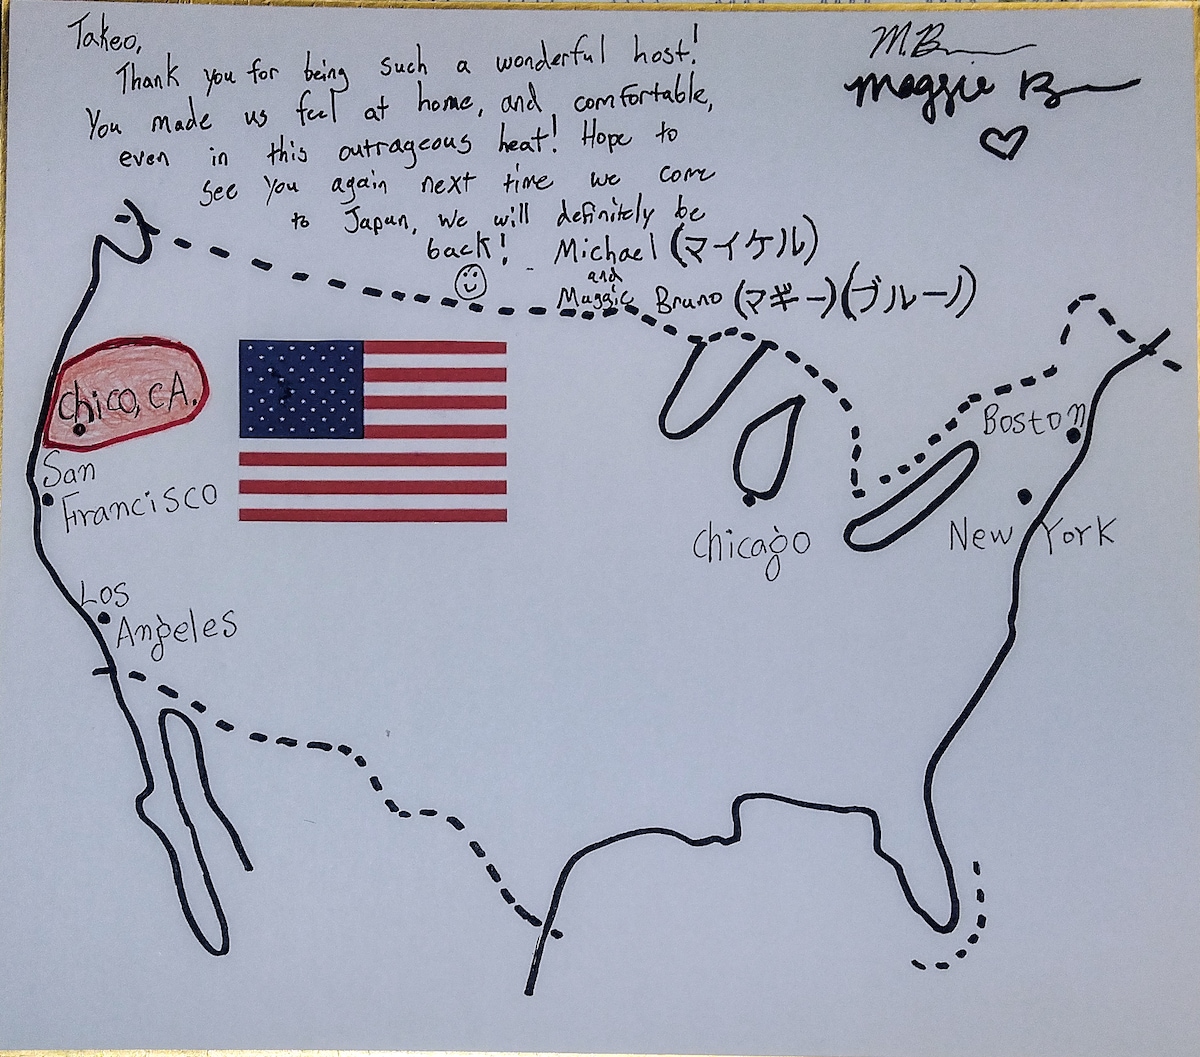 Takeo,
Thank you for being such a wonderful host!
You made us feel at home, and comfortable,
even in this outrageous heat! Hope to
see you again next time we come
to Japan, we will definitely be
back! Michael (マイケル)
and
Maggie Bruno (マギー)(ブルーノ)
M.B
Maggie B
Chico, CA.
San
Francisco
Los
Angeles
Chicago
Boston
New York